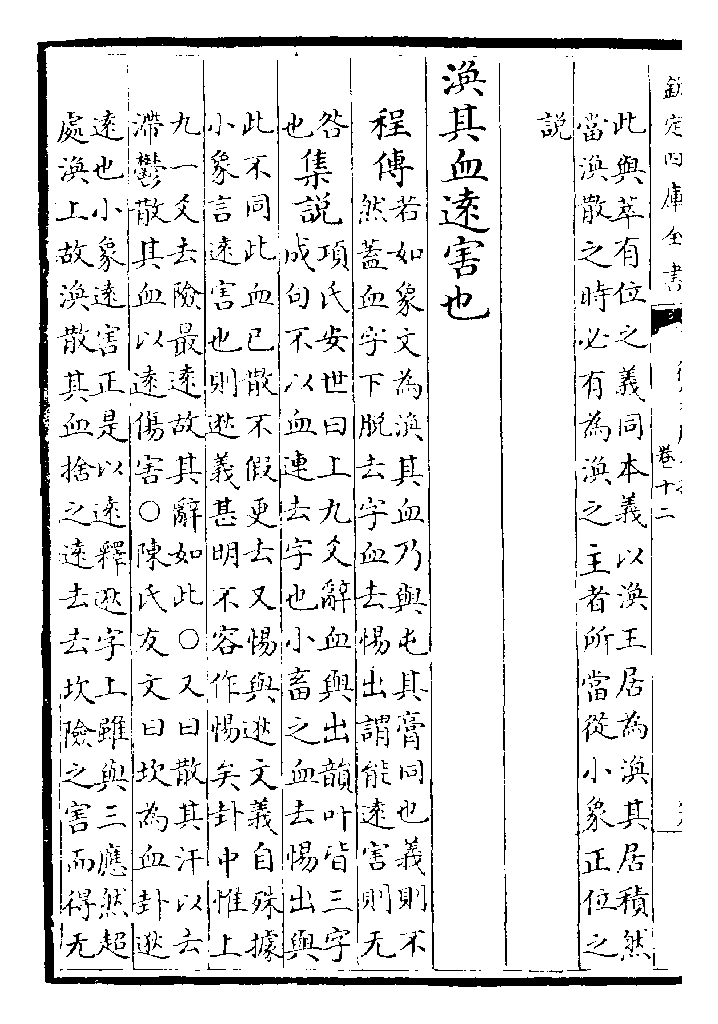 欽定四庫全書
卷十二
此與萃有位之義同本義以渙王居為渙其居積然
當渙散之時必有為渙之主者所當從小象正位之
說
渙其血遠害也
程傳若如象文為渙其血乃與屯其膏同也義則不
然蓋血字下脫去字血去惕出謂能遠害則无
咎
也集說項氏安世曰上九爻辭血與出韻叶皆三字
成句不以血連去字也小畜之血去惕出與
此不同此血已散不假更去又惕與逖文義自殊據
小象言遠害也則逖義甚明不容作惕矣卦中惟上
九一爻去險最遠故其辭如此○又曰散其汗以去
滯鬱散其血以遠傷害○陳氏友文曰坎為血卦逖
遠也小象遠害正是以遠釋逖字上雖與三應然超
處渙上故渙散其血捨之遠去去坎險之害而得无